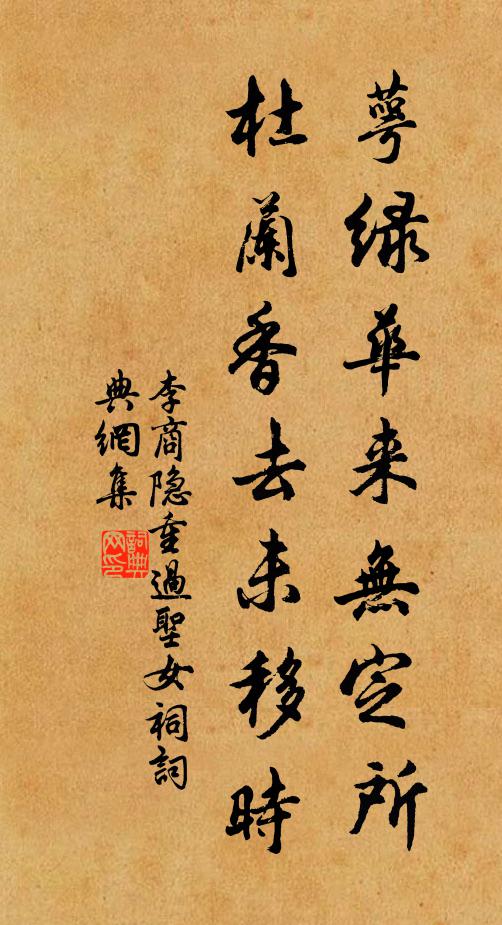 萼绿華来無定所
杜蘭香去未移時
李商隐重過聖女祠詞
典網集
詞典
网印